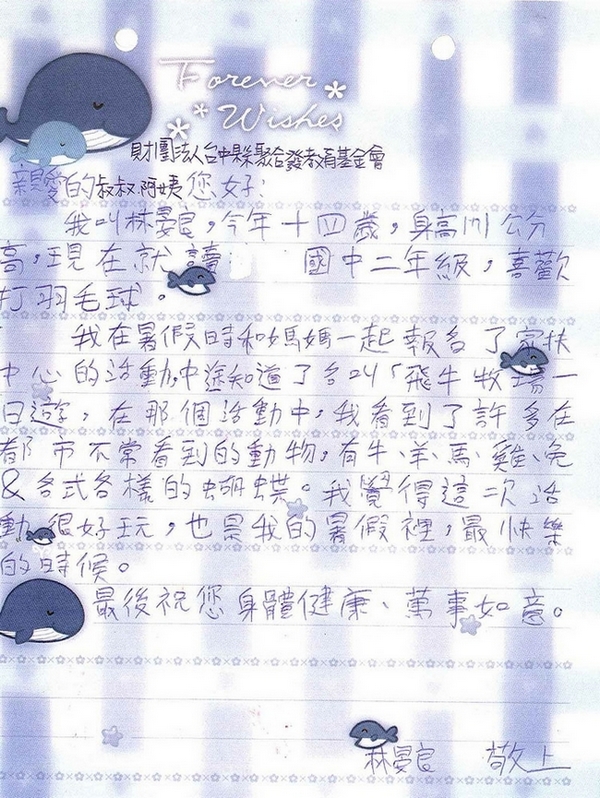 Forever
Wishes
財團法人台中縣聚合發教育基金會
親愛的叔叔阿姨您好:
我叫林晏良,今年十四歲,身高171公分
高,現在就讀 國中二年級,喜歡
打羽毛球。
我在暑假時和媽媽一起報名了家扶
中心的活動,中途知道了名叫「飛牛牧場一
日遊」,在那個活動中,我看到了許多在
都市不常看到的動物,有牛、羊、馬、雞、兔
&各式各樣的蝴蝶。我覺得這一次活
動很好玩,也是我的暑假裡,最快樂
的時候。
最後祝您身體健康、萬事如意。
林晏良 敬上